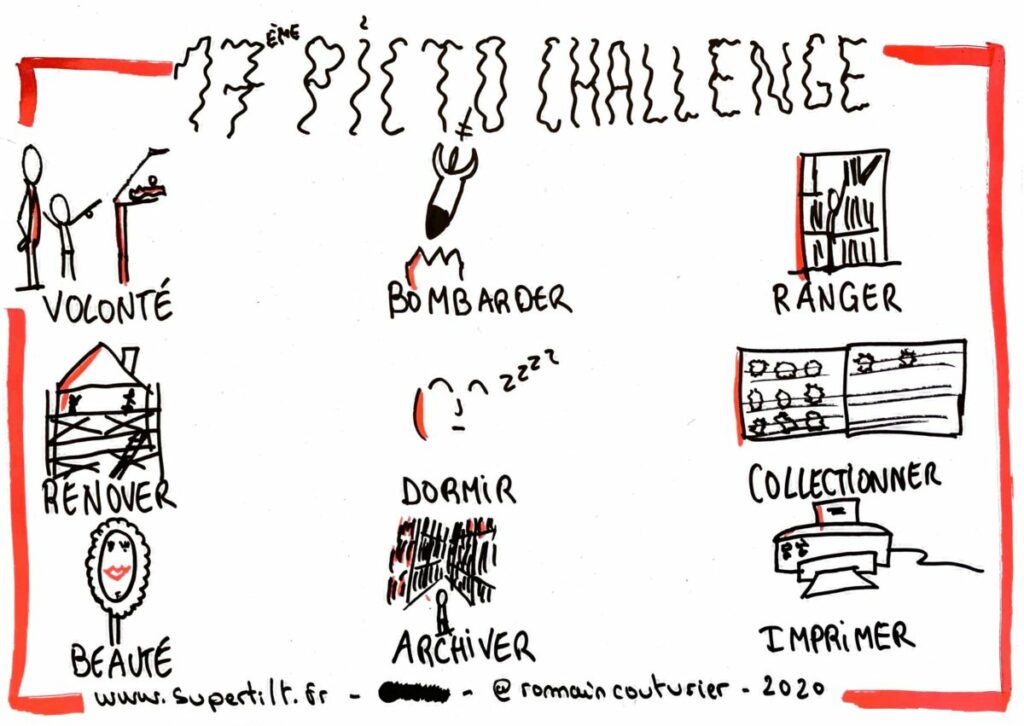 17ÈME PICTO CHALLENGE
VOLONTÉ
BOMBARDER
RANGER
RENOVER
ZZZZ
DORMIR
COLLECTIONNER
BEAUTÉ
ARCHIVER
IMPRIMER
www.supertilt.fr - - @romaincouturier - 2020